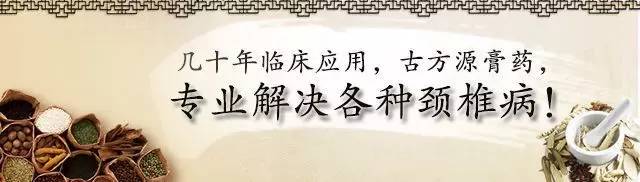 几十年临床应用，古方源膏药，
专业解决各种颈椎病！